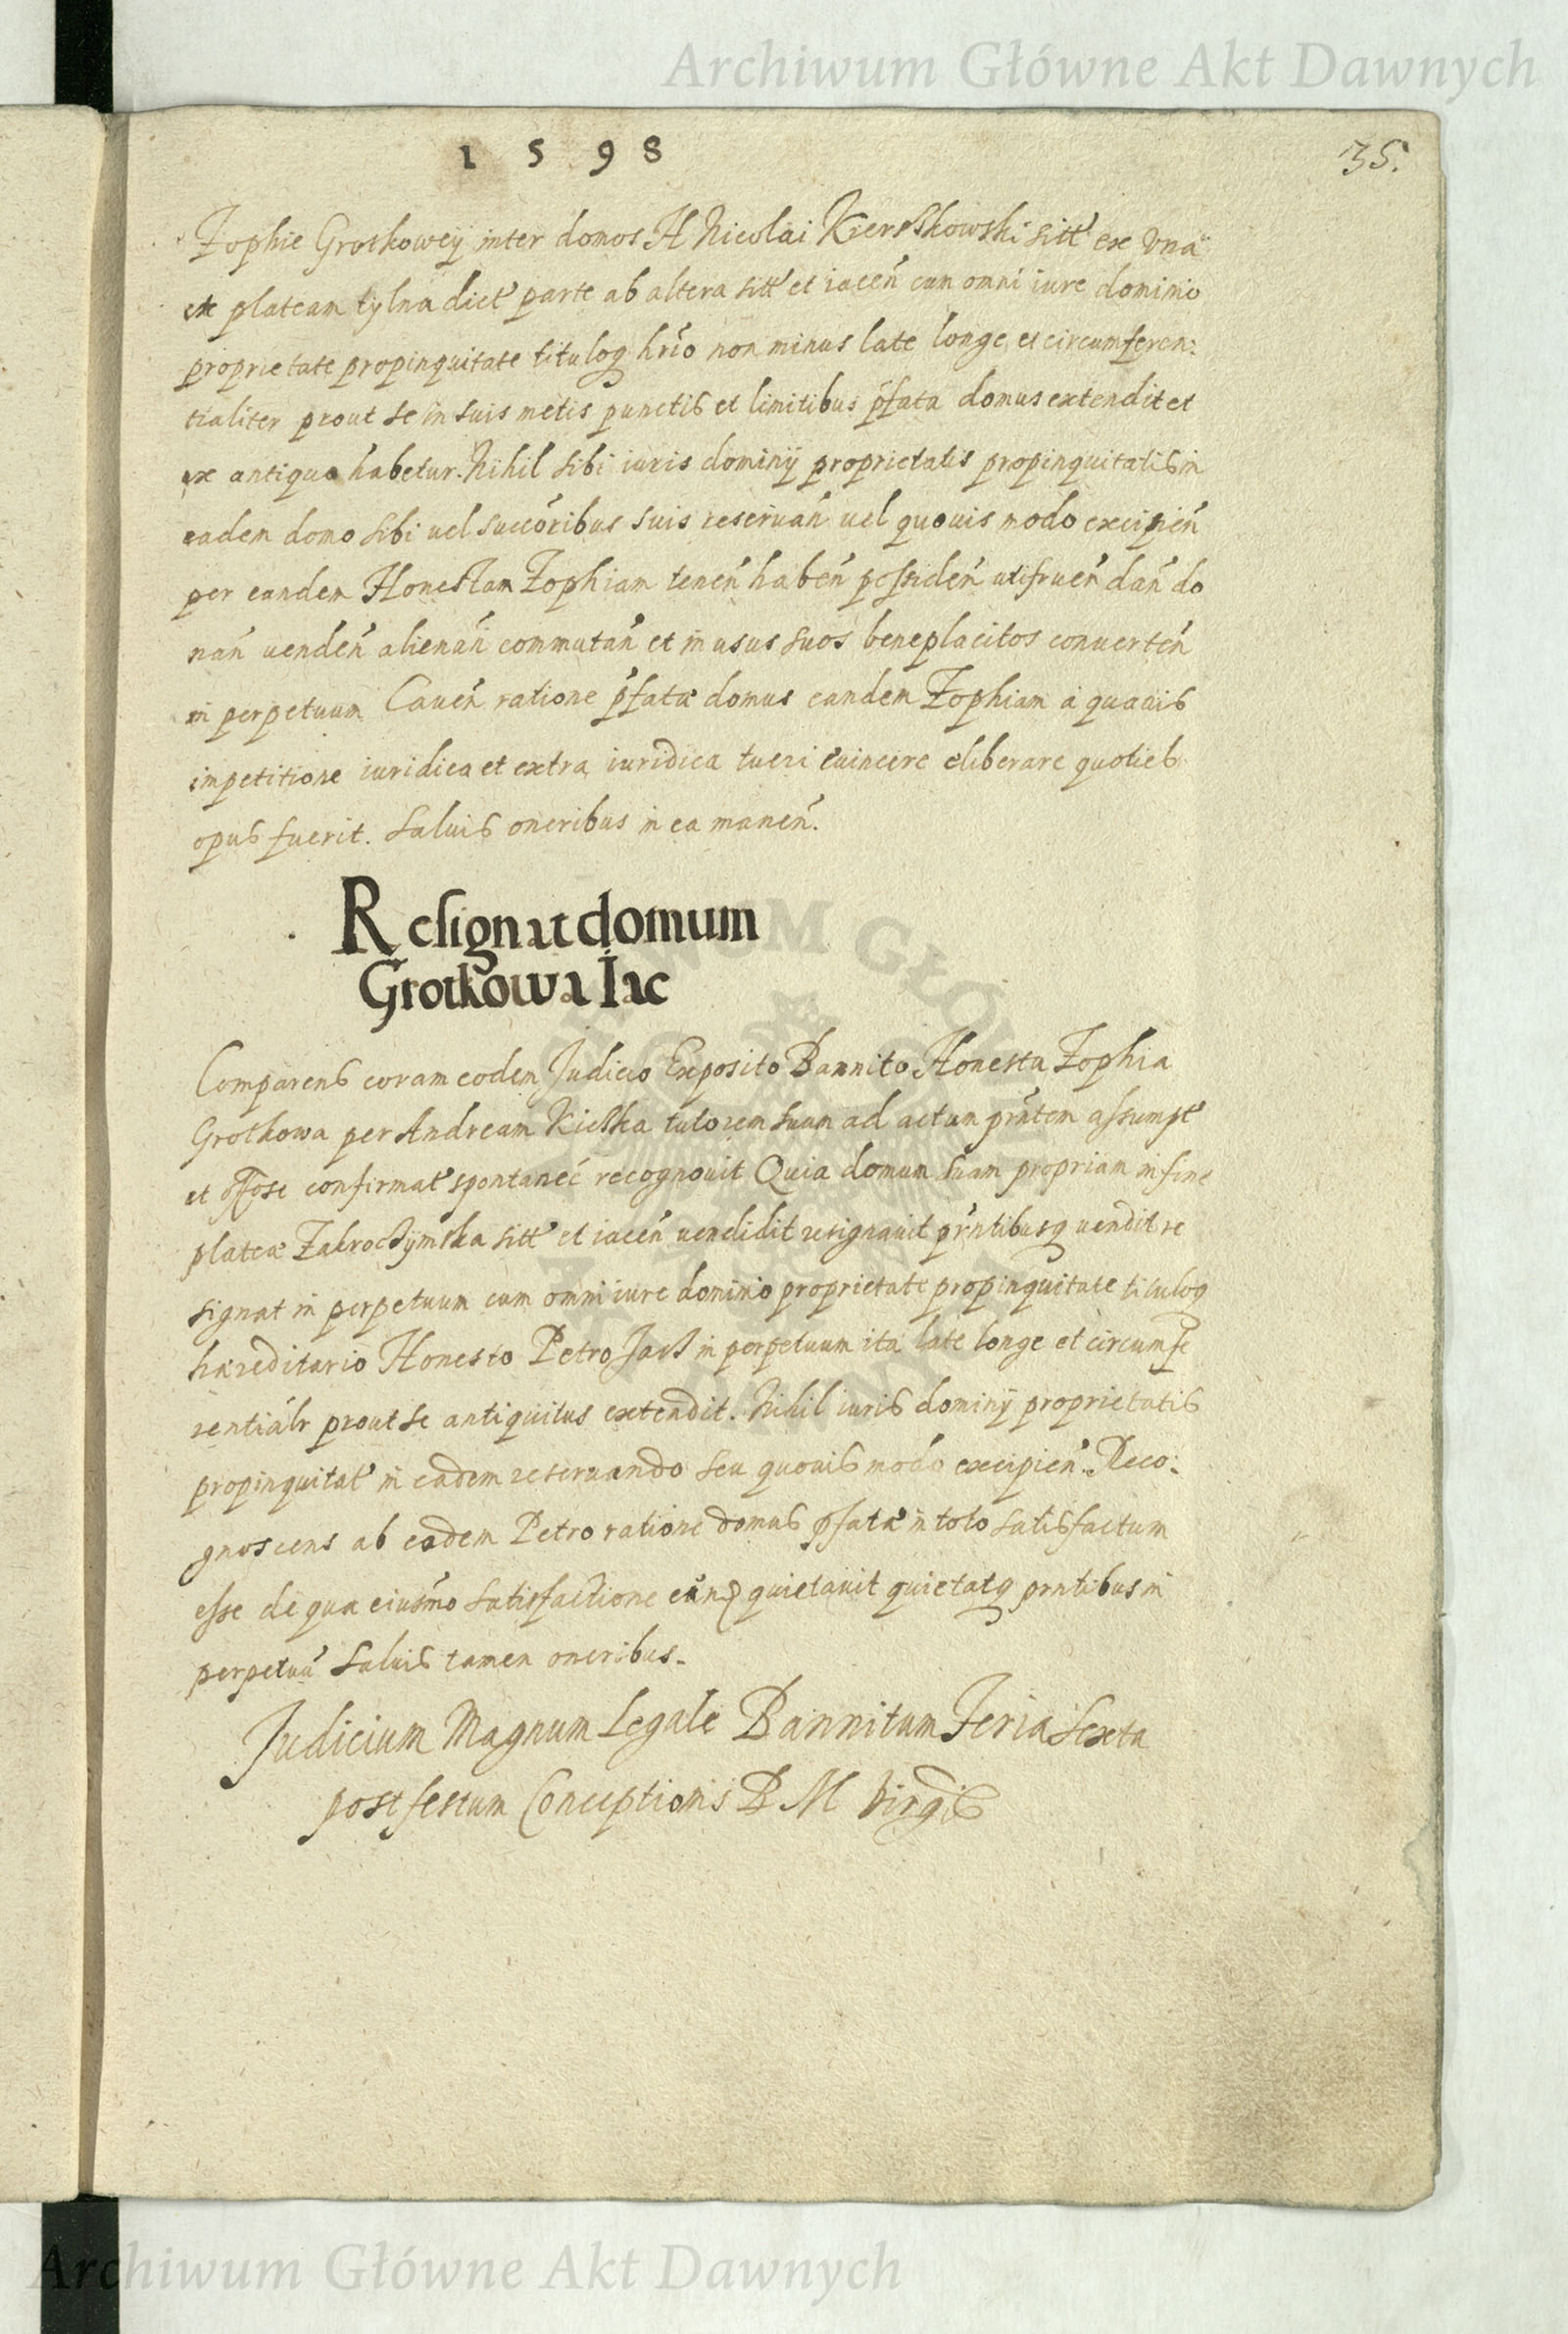 Archiwum Główne Akt Dawnych
1598
35.
Zophie Grotkoweÿ inter domos H Nicolai Kierskowski sitt' ex vna
et plateam tylna dict' parte ab altera sitt' et iaceñ cum omni iure dominio
proprietate propinquitate tituloq hrio non minus late longe et circumferen:
tialiter prout se in suis metis punctis et limitibus pfata domus extendit et
ex antiquo habetur. Nihil sibi iuris dominÿ proprietatis propinquitatis in
eadem domo sibi uel succoribus suis reseruañ uel quouis modo excipieñ
per eandem Honestam Zophiam teneñ habeñ possideñ utifrueñ dañ do
nañ uendeñ alienañ commutañ et in usus suos beneplacitos conuerteñ
in perpetuum Caueñ ratione pfatæ domus eandem Zophiam a quauis
impetitione iuridica et extra iuridica tueri euincere eliberare quoties
opus fuerit. Saluis oneribus in ea maneñ.
Resignat domum
Grotkowa Iac
Comparens coram eodem Judicio Exposito Bannito Honesta Zophia
Grotkowa per Andream Kielka tutorem suum ad actum prntem assumpt'
et confirmat' spontanee recognouit Quia domum suam propriam in fine
plateæ Zakroczÿmska sitt' et iaceñ uendidit resignauit prntibusq uendit re
signat in perpetuum cum omni iure dominio proprietate propinquitate tituloq
hæreditario Honesto Petro Jacz in perpetuum ita late longe et circumfe
rentialr prout se antiquitus extendit. Nihil iuris dominÿ proprietatis
propinquitat' in eadem reseruando seu quouis modo excipieñ. Reco:
gnoscens ab eodem Petro ratione domus pfatæ in toto satisfactum
esse de qua eiusmo satisfactione eund quietauit quietatq prntibus in
perpetuu Saluis tamen oneribus.
Judicium Magnum Legale Bannitum Feria Sexta
post festum Conceptionis B M Virgis
Archiwum Główne Akt Dawnych